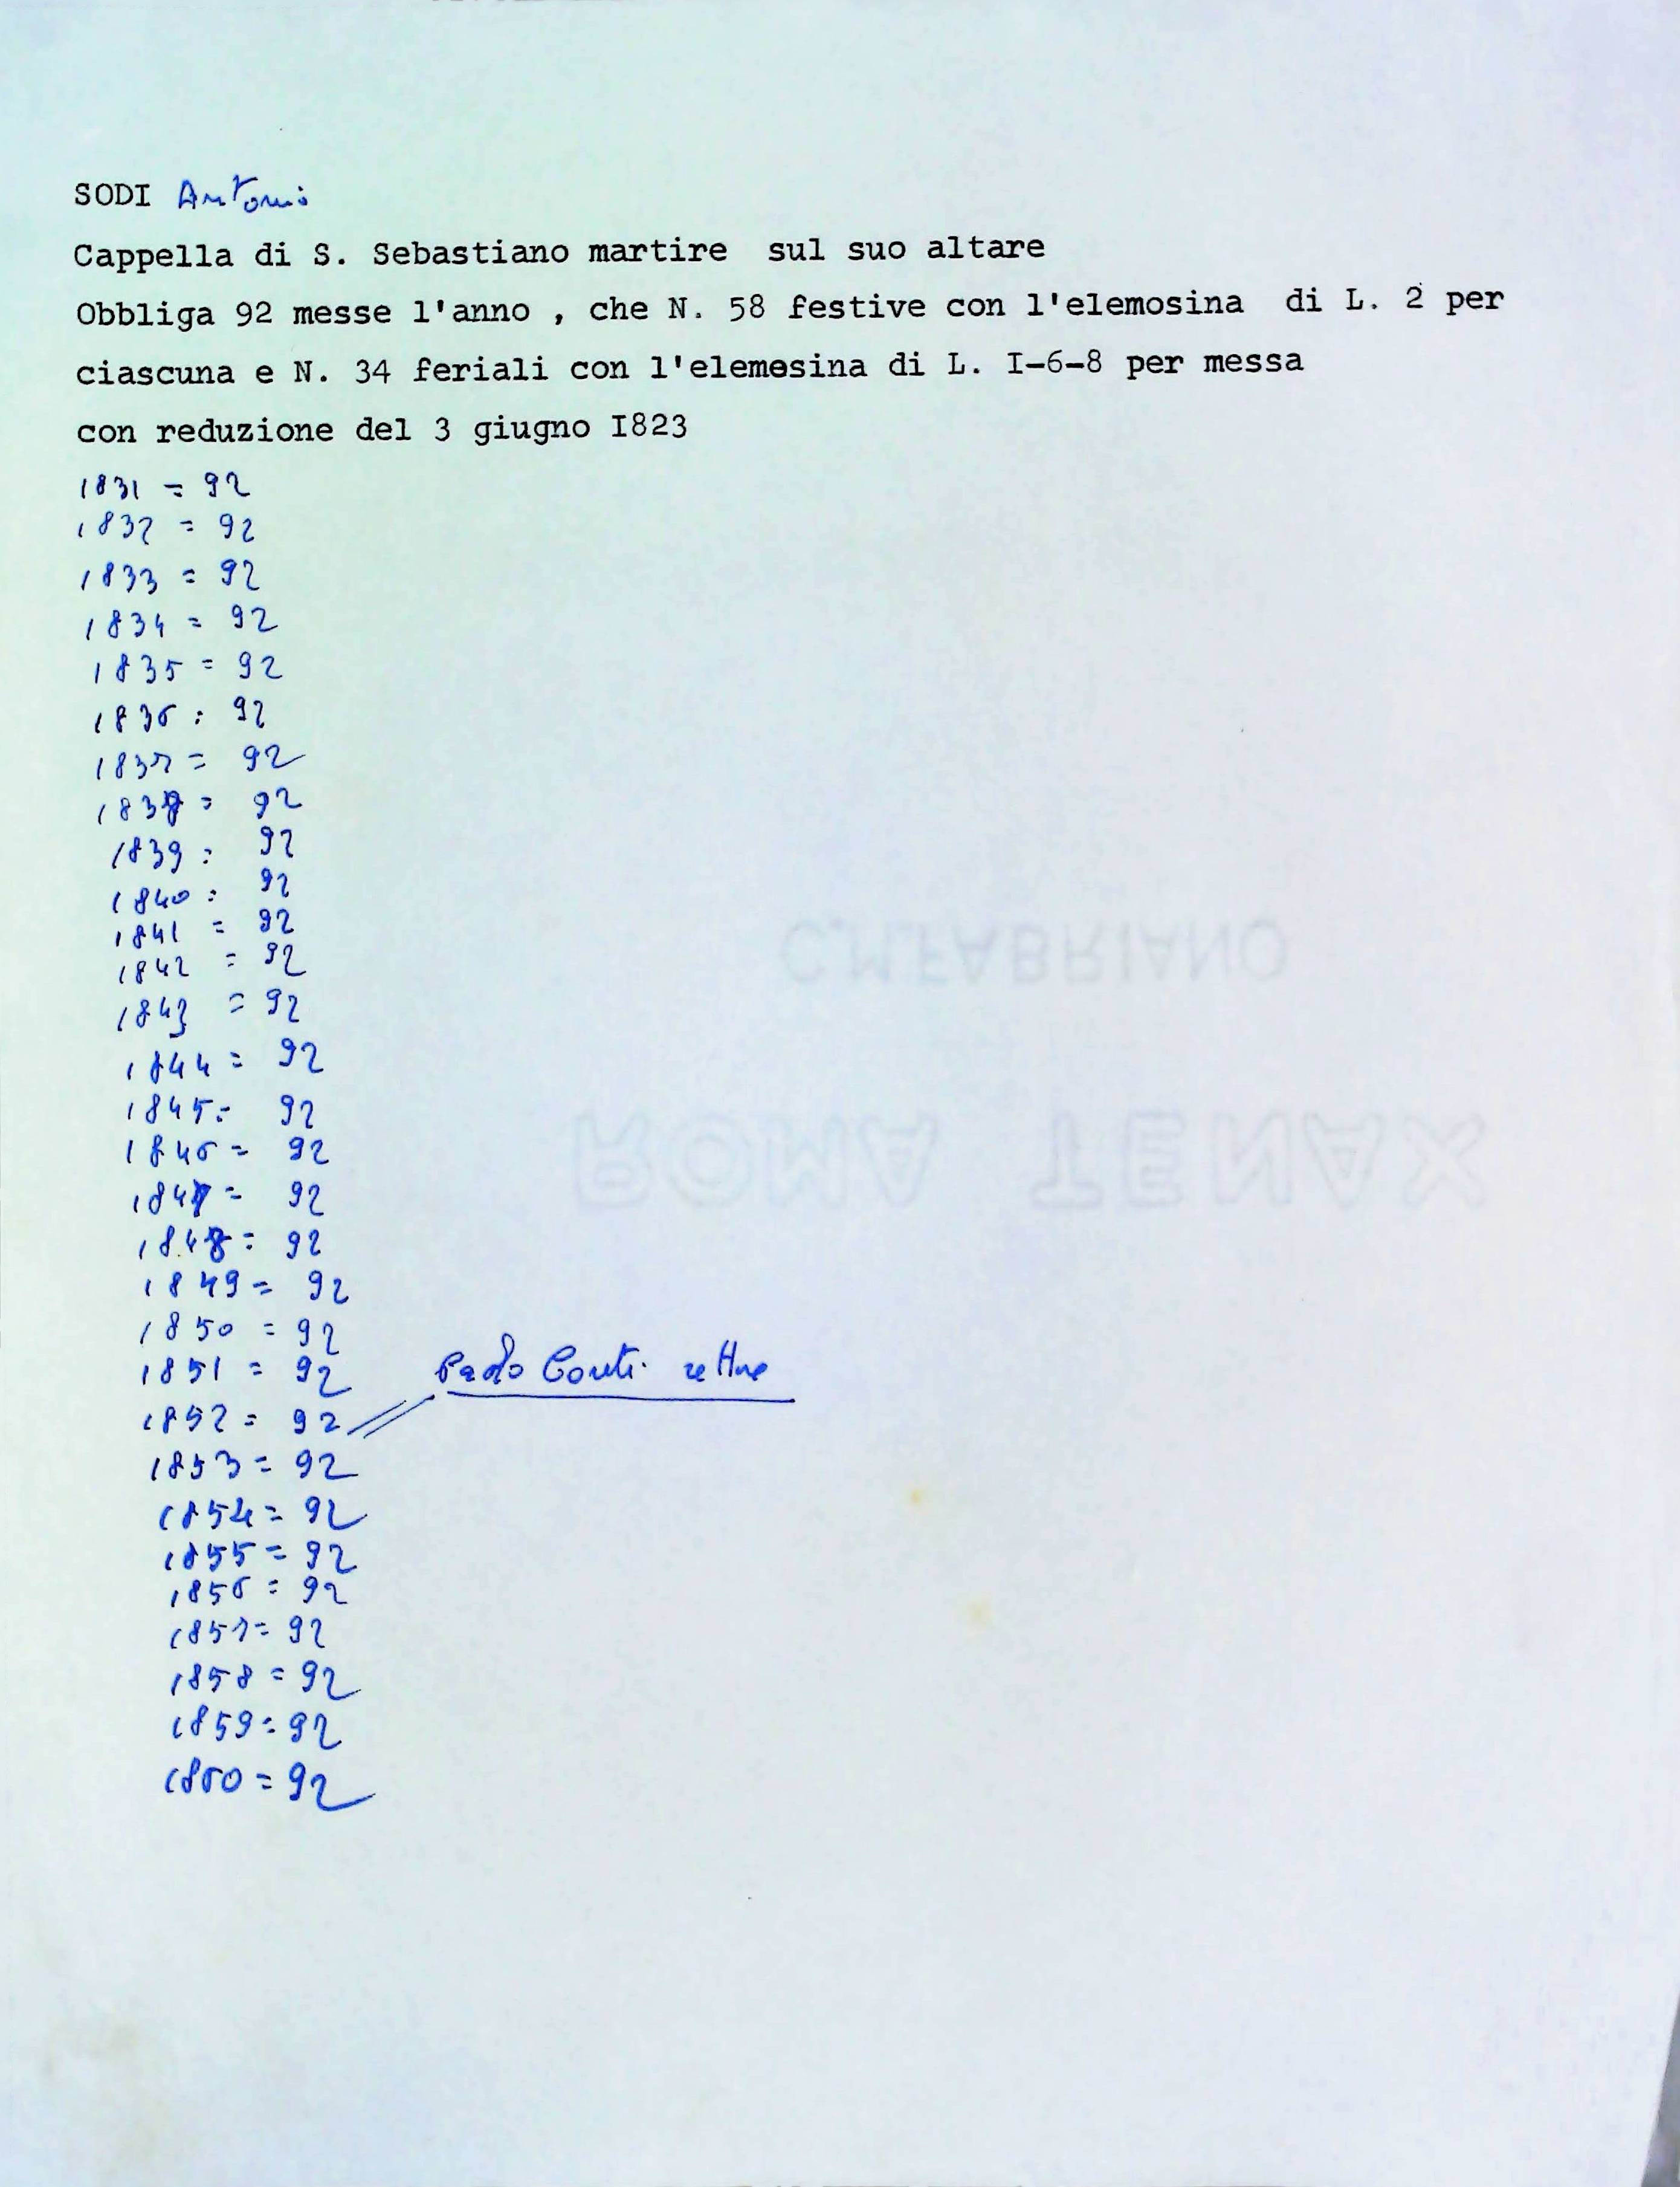 SODI Antonio
Cappella di S. Sebastiano martire sul suo altare
Obbliga 92 messe l'anno , che N. 58 festive con l'elemosina di L. 2 per
ciascuna e N. 34 feriali con l'elemosina di L. I-6-8 per messa
con reduzione del 3 giugno I823
1831 = 92
1832 = 92
1833 = 92
1834 = 92
1835 = 92
1836 : 92
1837 = 92
1838 = 92
1839 : 92
1840 : 92
1841 = 92
1842 = 92
1843 = 92
1844 = 92
1845 = 92
1846 = 92
1847 = 92
1848 = 92
1849 = 92
1850 = 92
1851 = 92 Paolo Conti rettore
1852 = 92
1853 = 92
1854 = 92
1855 = 92
1856 = 92
1857 = 92
1858 = 92
1859 = 92
1860 = 92
C.M.FABRIANO
ROMA TENAX